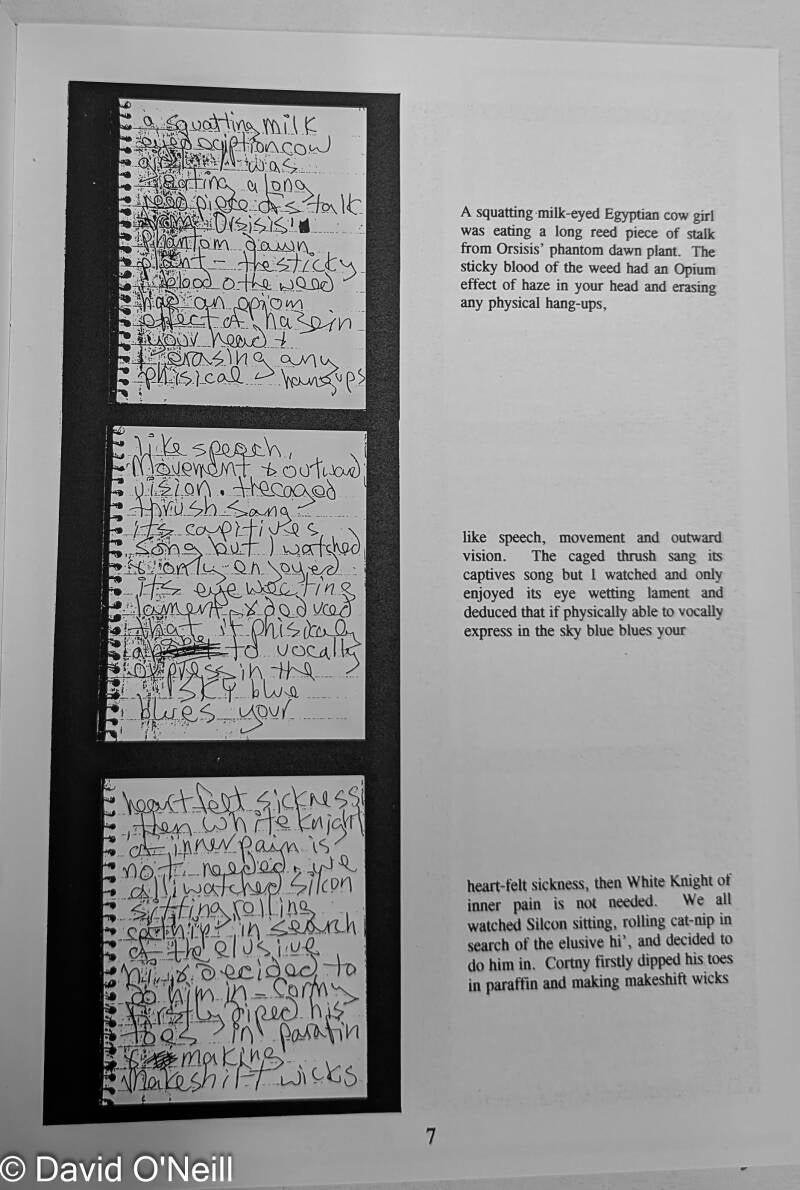 a squatting milk
eyed egiption cow
girl was
eating a long
reed piece of stalk
from Orsisis'
phantom dawn
plant - the sticky
blood o the weed
had an opiom
effect of hase in
your head &
erasing any
phisical hangups
like speech,
Movement & outward
vision. the caged
thrush sang
its capitives
song but I watched
& only enjoyed
its eye weeting
lament, & deduced
that if phisicaly
able to vocally
express in the
sky blue
blues your
heart felt sickness
, then white knight
of inner pain is
not needed. we
all watched Silcon
sitting, rolling
catnip in search
of the elusive
hi', & decided to
do him in - Cortny
firstly diped his
toes in parafin
& making
makeshift wicks
A squatting milk-eyed Egyptian cow girl
was eating a long reed piece of stalk
from Orsisis' phantom dawn plant. The
sticky blood of the weed had an Opium
effect of haze in your head and erasing
any physical hang-ups,
like speech, movement and outward
vision. The caged thrush sang its
captives song but I watched and only
enjoyed its eye wetting lament and
deduced that if physically able to vocally
express in the sky blue blues your
heart-felt sickness, then White Knight of
inner pain is not needed. We all
watched Silcon sitting, rolling cat-nip in
search of the elusive hi', and decided to
do him in. Cortny firstly dipped his toes
in paraffin and making makeshift wicks
7
© David O'Neill